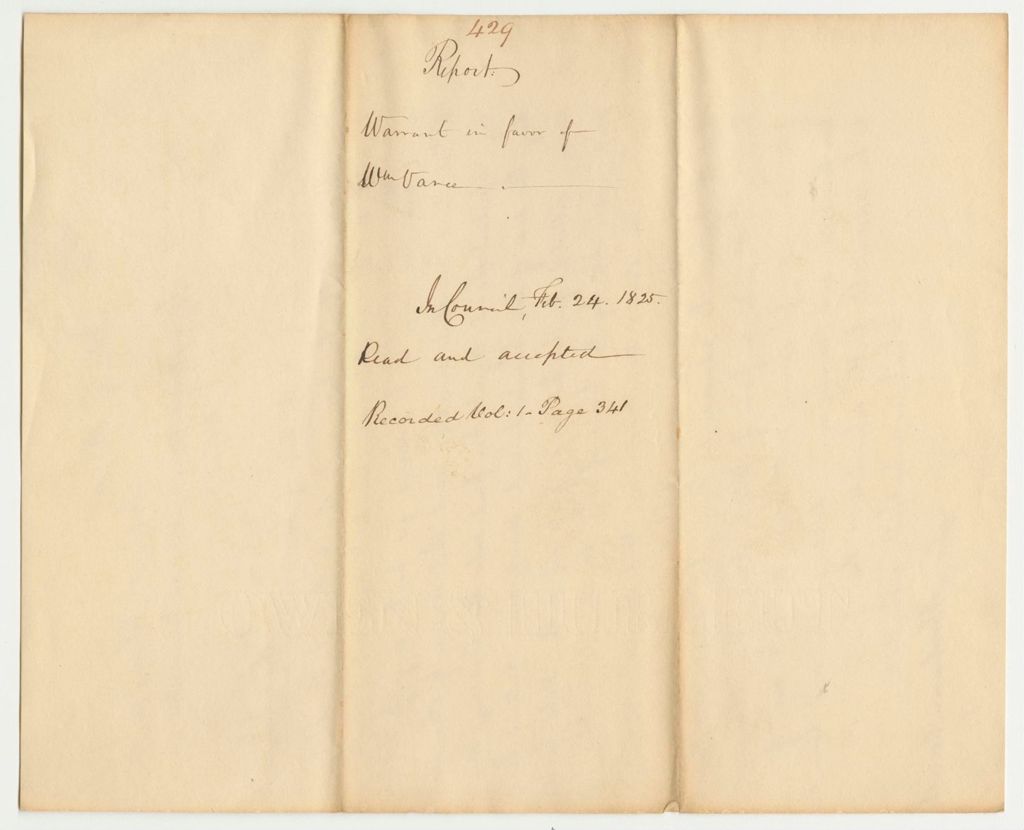 429
Report.
Warrant in favor of
Wm Vance
In Council, Feb. 24. 1825.
Read and accepted
Recorded Vol: 1- Page 341